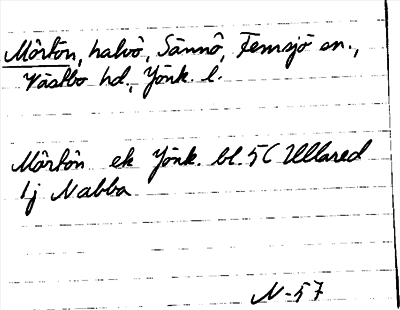 Mörtön, halvö, Sännö, Femsjö sn.,
Västbo hd., Jönk. l.
Mörtön ek Jönk. bl. 5C Ullared
1j Nabba
N-57